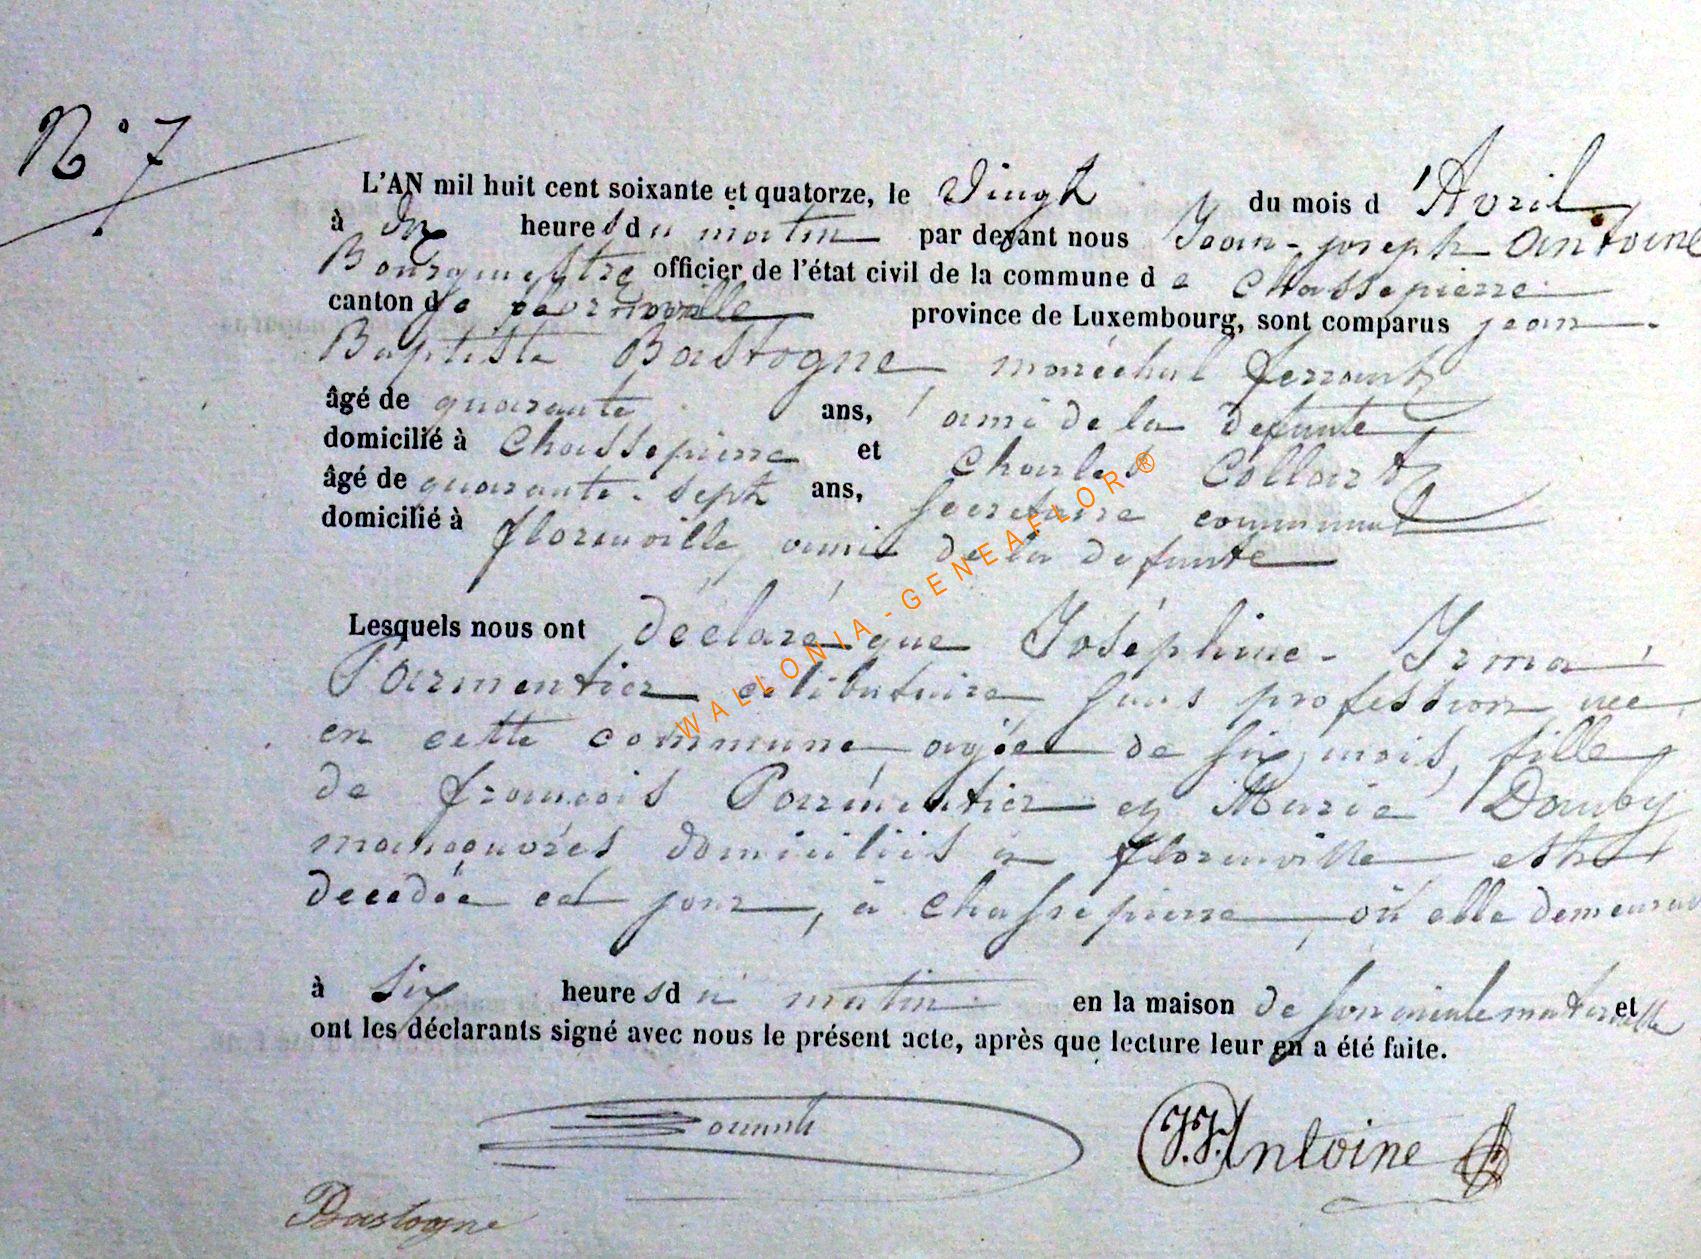 N° 7
L'AN mil huit cent soixante et quatorze, le Vingt du mois d'Avril
à dix heures du matin par devant nous Jean-joseph Antoine
Bourgmestre officier de l'état civil de la commune de Chassepierre
canton de florenville province de Luxembourg, sont comparus jean
Baptiste Bastogne maréchal ferrant
âgé de quarante ans, ami de la defunte
domicilié à Chassepierre et Charles Collart
âgé de quarante-sept ans, secretaire communal
domicilié à florenville, ami de la defunte
WALLONIA-GENEAFLOR®
Lesquels nous ont déclaré que Joséphine-Irma
Parmentier celibataire sans profession née
en cette commune agée de six mois, fille
de françois Parmentier et Marie Dauby
manoeuvres domiciliés à florenville est
decedée ce jour, à chassepierre où elle demeurait
à six heures du matin en la maison de son aieule maternelle et
ont les déclarants signé avec nous le présent acte, après que lecture leur en a été faite.
J.J. Antoine
Bastogne